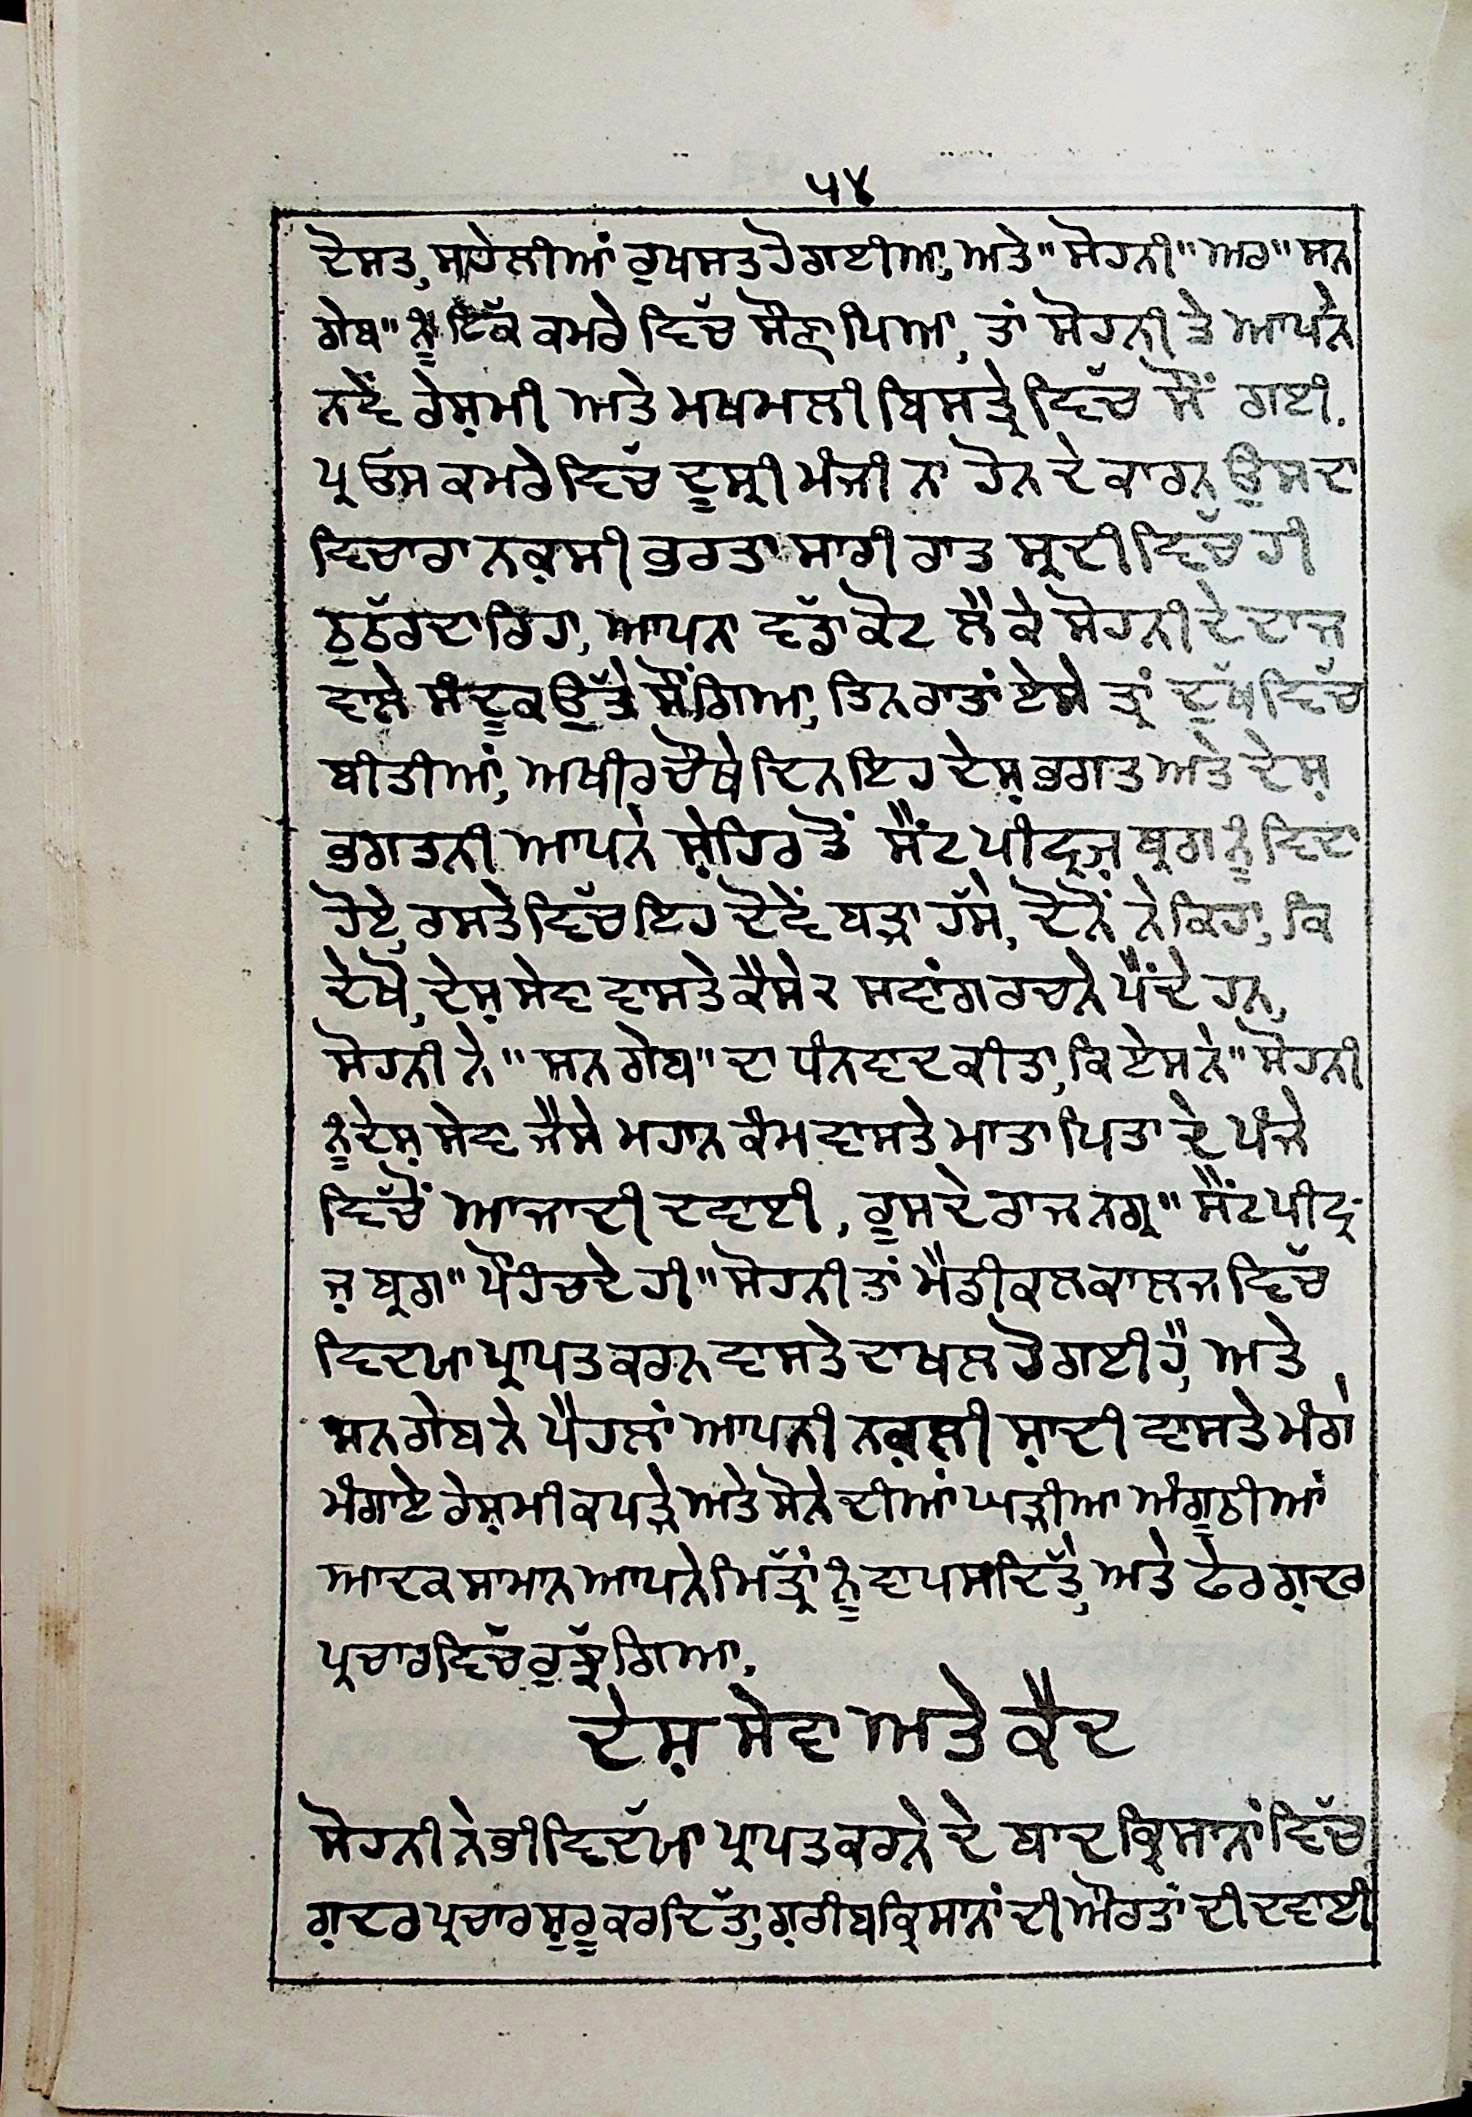 ੫੪
ਦੋਸਤ, ਸਹੇਲੀਆਂ ਰੁਖਸਤ ਹੋ ਗਈਆ, ਅਤੇ "ਸੋਹਨੀ" ਅਰ "ਸਨ
ਗੇਬ" ਨੂੰ ਇੱਕ ਕਮਰੇ ਵਿੱਚ ਸੌਣਾ ਪਿਆ, ਤਾਂ ਸੋਹਨੀ ਤੇ ਆਪਨੇ
ਨਵੇਂ ਰੇਸ਼ਮੀ ਅਤੇ ਮਖਮਲੀ ਬਿਸਤ੍ਰੇ ਵਿੱਚ ਸੌਂ ਗਈ.
ਪ੍ਰ ਓਸ ਕਮਰੇ ਵਿੱਚ ਦੂਸ੍ਰੀ ਮੰਜੀ ਨਾ ਹੋਨ ਦੇ ਕਾਰਨ ਉਸਦਾ
ਵਿਚਾਰਾ ਨਕ਼ਲੀ ਭਰਤਾ ਸਾਰੀ ਰਾਤ ਸ੍ਰਦੀ ਵਿੱਚ ਹੀ
ਠੁਠੱਰਦਾ ਰਿਹਾ, ਆਪਨਾ ਵਡਾੱ ਕੋਟ ਲੈ ਕੇ ਸੋਹਨੀ ਦੇ ਦਾਜ
ਵਾਲੇ ਸੰਦੂਕ ਉੱਤੇ ਸੌਂ ਗਿਆ, ਤਿਨ ਰਾਤਾਂ ਏਸੇ ਤ੍ਰਾਂ ਦੁੱਖ ਵਿੱਚ
ਬੀਤੀਆਂ, ਅਖੀਰ ਚੌਥੇ ਦਿਨ ਇਹ ਦੇਸ਼ ਭਗਤ ਅਤੇ ਦੇਸ਼
ਭਗਤਨੀ ਆਪਨੇ ਸ਼ੇਹਿਰ ਤੋਂ ਸੈਂਟ ਪੀਟ੍ਰਜ਼ ਬ੍ਰਗ ਨੂੰ ਵਿਦਾ
ਹੋਏ, ਰਸਤੇ ਵਿੱਚ ਇਹ ਦੋਵੇਂ ਬੜਾ ਹੱਸੇ, ਦੋਨੋਂ ਨੇ ਕਿਹਾ, ਕਿ
ਦੇਖੋ, ਦੇਸ਼ ਸੇਵਾ ਵਾਸਤੇ ਕੈਸੇ ੨ ਸਵਾਂਗ ਰਚਨੇ ਪੈਂਦੇ ਹਨ,
ਸੋਹਨੀ ਨੇ "ਸਨ ਗੇਬ" ਦਾ ਧੰਨਵਾਦ ਕੀਤਾ, ਕਿ ਏਸ ਨੇ "ਸੋਹਨੀ
ਨੂੰ ਦੇਸ਼ ਸੇਵਾ ਜੈਸੇ ਮਹਾਨ ਕੰਮ ਵਾਸਤੇ ਮਾਤਾ ਪਿਤਾ ਦੇ ਪੰਜੇ
ਵਿੱਚੋਂ ਆਜਾਦੀ ਦਵਾਈ, ਰੂਸ ਦੇ ਰਾਜ ਨਗ੍ਰ "ਸੈਂਟ ਪੀਟ੍ਰ
ਜ਼ ਬ੍ਰਗ" ਪੌਹਿਚਦੇ ਹੀ "ਸੋਹਨੀ ਤਾਂ ਮੈਡੀਕਲ ਕਾਲਜ ਵਿੱਚ
ਵਿਦਯਾ ਪ੍ਰਾਪਤ ਕਰਨ ਵਾਸਤੇ ਦਾਖਲ ਹੋ ਗਈ ਹੈ, ਅਤੇ
ਸਨ ਗੇਬ ਨੇ ਪੈਹਲਾਂ ਆਪਨੀ ਨਕ਼ਲੀ ਸ਼ਾਦੀ ਵਾਸਤੇ ਮੰਗੇ
ਮੰਗਾਏ ਰੇਸ਼ਮੀ ਕਪੜੇ ਅਤੇ ਸੋਨੇ ਦੀਆਂ ਘੜੀਆ ਅੰਗੂਠੀਆਂ
ਆਦਕ ਸਾਮਾਨ ਆਪਨੇ ਮਿੱਤ੍ਰਾਂ ਨੂੰ ਵਾਪਸ ਦਿੱਤੇ, ਅਤੇ ਫੇਰ ਗ਼ਦਰ
ਪ੍ਰਚਾਰ ਵਿੱਚ ਰੁਝੱ ਗਿਆ.
ਦੇਸ਼ ਸੇਵਾ ਅਤੇ ਕੈਦ
ਸੋਹਨੀ ਨੇ ਭੀ ਵਿਦੱਯਾ ਪ੍ਰਾਪਤ ਕਰਨੇ ਦੇ ਬਾਦ ਕ੍ਰਿਸਾਨਾਂ ਵਿੱਚ
ਗ਼ਦਰ ਪ੍ਰਚਾਰ ਸ਼ੁਰੂ ਕਰ ਦਿੱਤਾ, ਗ਼ਰੀਬ ਕ੍ਰਿਸਾਨਾਂ ਦੀ ਔਰਤਾਂ ਦੀ ਦਵਾਈ